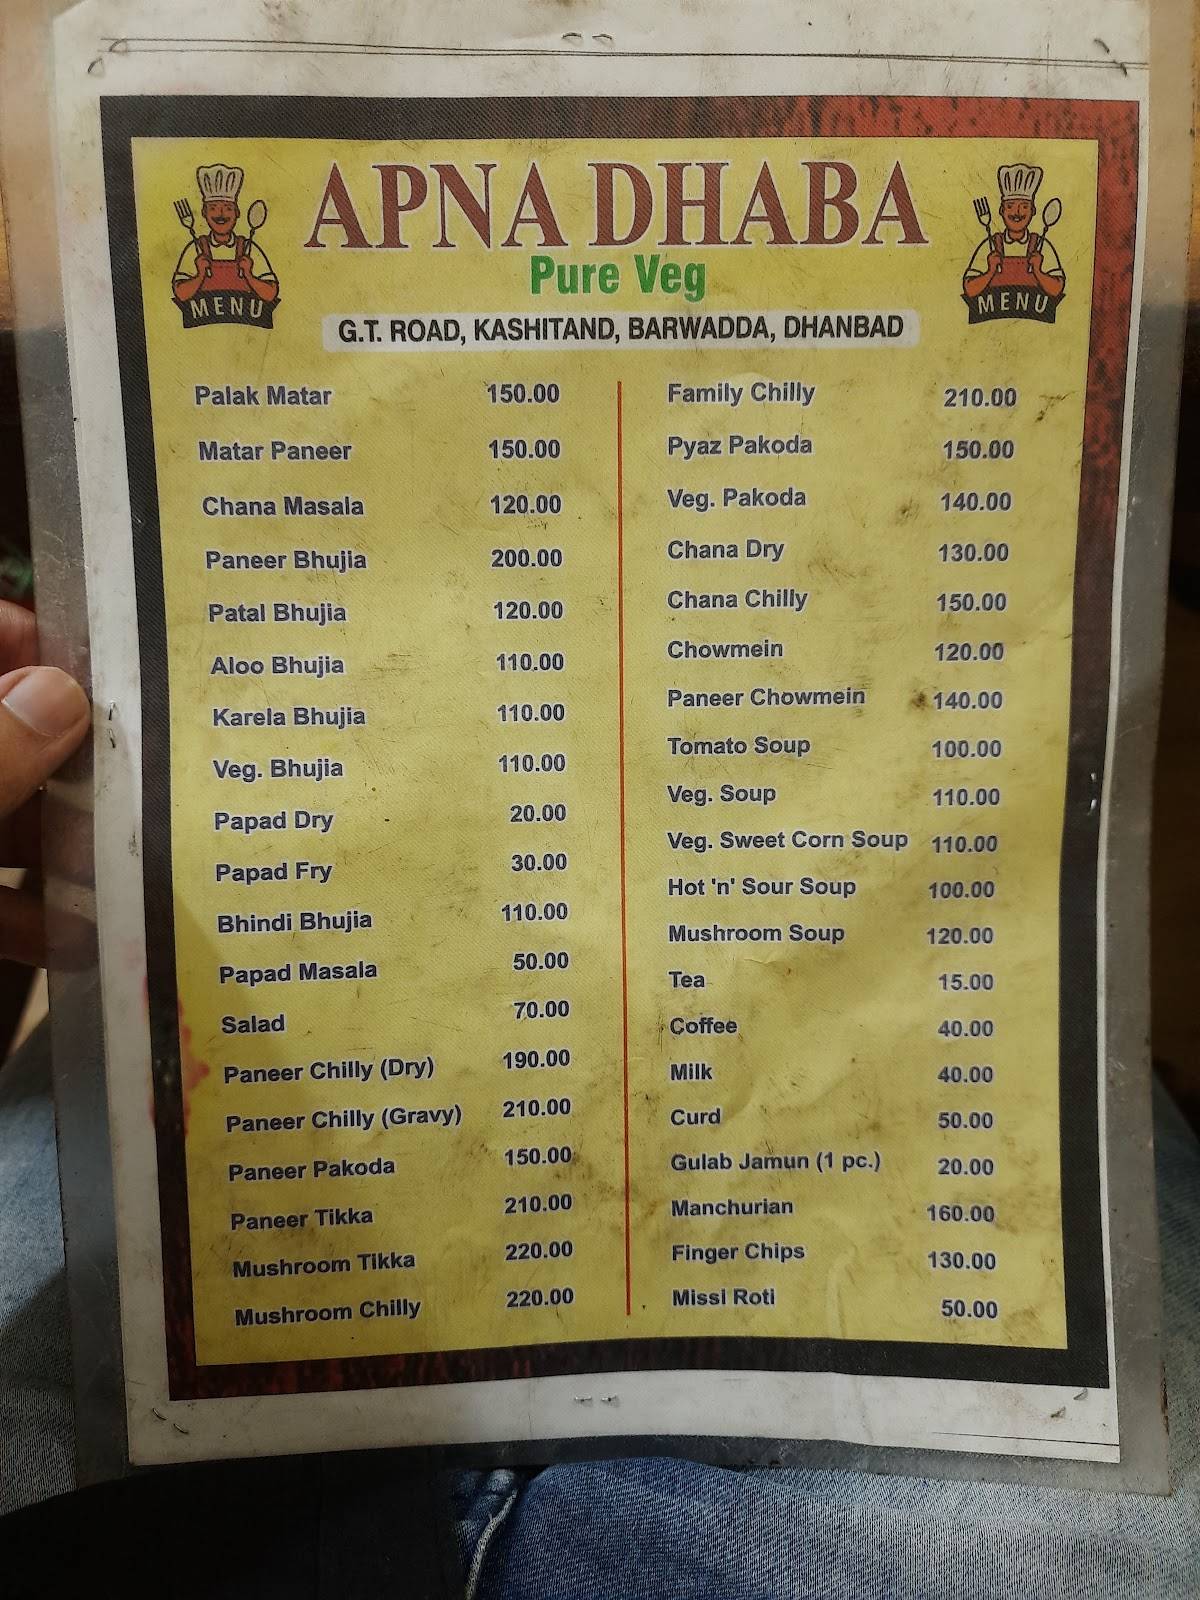 APNA DHABA
Pure Veg
MENU
MENU
G.T. ROAD, KASHITAND, BARWADDA, DHANBAD
Palak Matar 150.00
Matar Paneer 150.00
Chana Masala 120.00
Paneer Bhujia 200.00
Patal Bhujia 120.00
Aloo Bhujia 110.00
Karela Bhujia 110.00
Veg. Bhujia 110.00
Papad Dry 20.00
Papad Fry 30.00
Bhindi Bhujia 110.00
Papad Masala 50.00
Salad 70.00
Paneer Chilly (Dry) 190.00
Paneer Chilly (Gravy) 210.00
Paneer Pakoda 150.00
Paneer Tikka 210.00
Mushroom Tikka 220.00
Mushroom Chilly 220.00
Family Chilly 210.00
Pyaz Pakoda 150.00
Veg. Pakoda 140.00
Chana Dry 130.00
Chana Chilly 150.00
Chowmein 120.00
Paneer Chowmein 140.00
Tomato Soup 100.00
Veg. Soup 110.00
Veg. Sweet Corn Soup 110.00
Hot 'n' Sour Soup 100.00
Mushroom Soup 120.00
Tea 15.00
Coffee 40.00
Milk 40.00
Curd 50.00
Gulab Jamun (1 pc.) 20.00
Manchurian 160.00
Finger Chips 130.00
Missi Roti 50.00